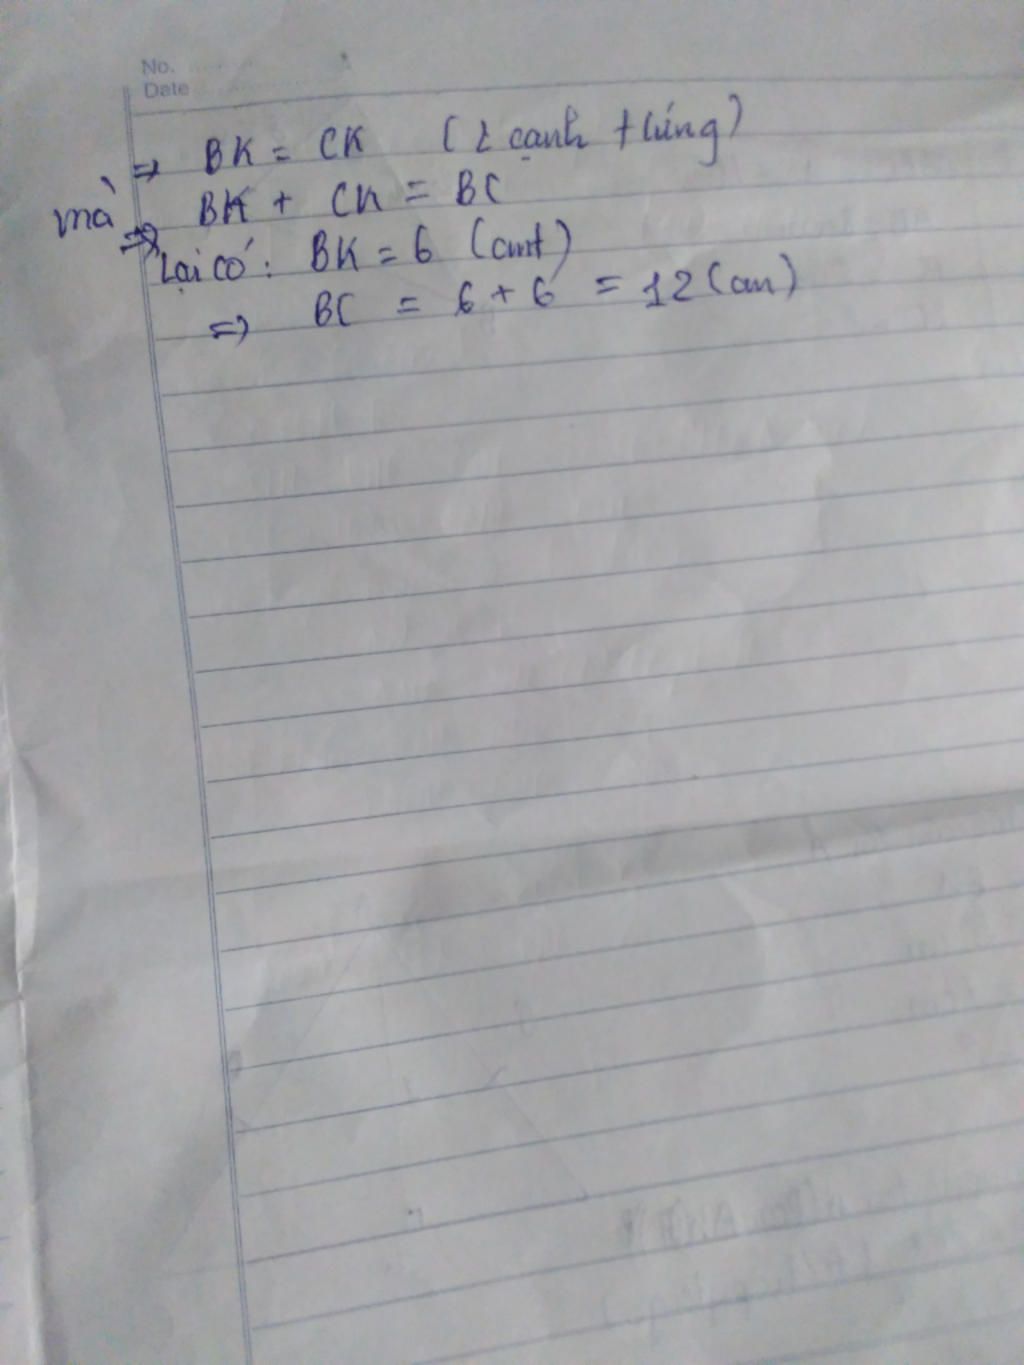 No.
Date
⇒ BK = CK (2 cạnh tứng)
mà BK + CK = BC
⇒ Lại có: BK = 6 (cmt)
⇒ BC = 6 + 6 = 12 (cm)